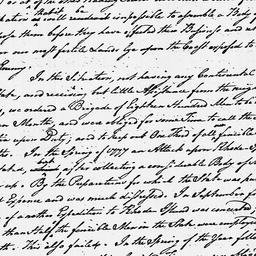 as will render it impossible to assemble a Body of
before they have effected their Business and
our most fertile Lands lye upon the Coast exposed to
Enemy.
In this Situation, not having any Continental
State, and receiving but little Assistance from the neigh
we ordered a Brigade of Eighteen Hundred Men to be
Months, and were obliged for some Time to call the
upon Duty; and to keep out One Third of the fencible
In the Spring of 1777 an Attack upon Rhode Isl
after collecting a considerable Body of
up. By the Preparations for which the State was put
Expence and was much distressed. In September fo
of another Expedition to Rhode Island was concerted
than Half the fencible Men in the State were employed
This also failed. In the Spring of the Year follo